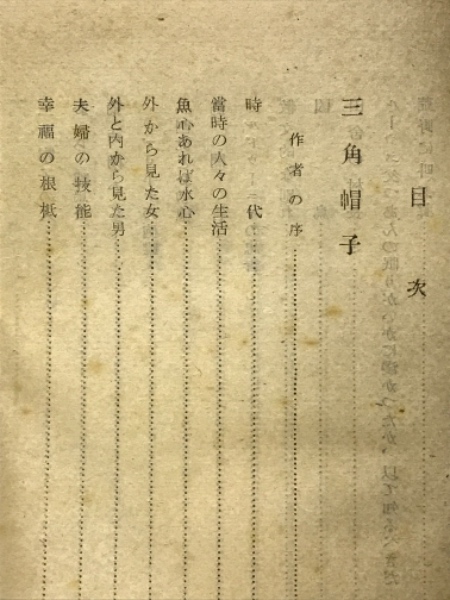 目次
三角帽子
作者の序
時代
當時の人々の生活
魚心あれば水心
外から見た女
外と内から見た男
夫婦の技能
幸福の根柢